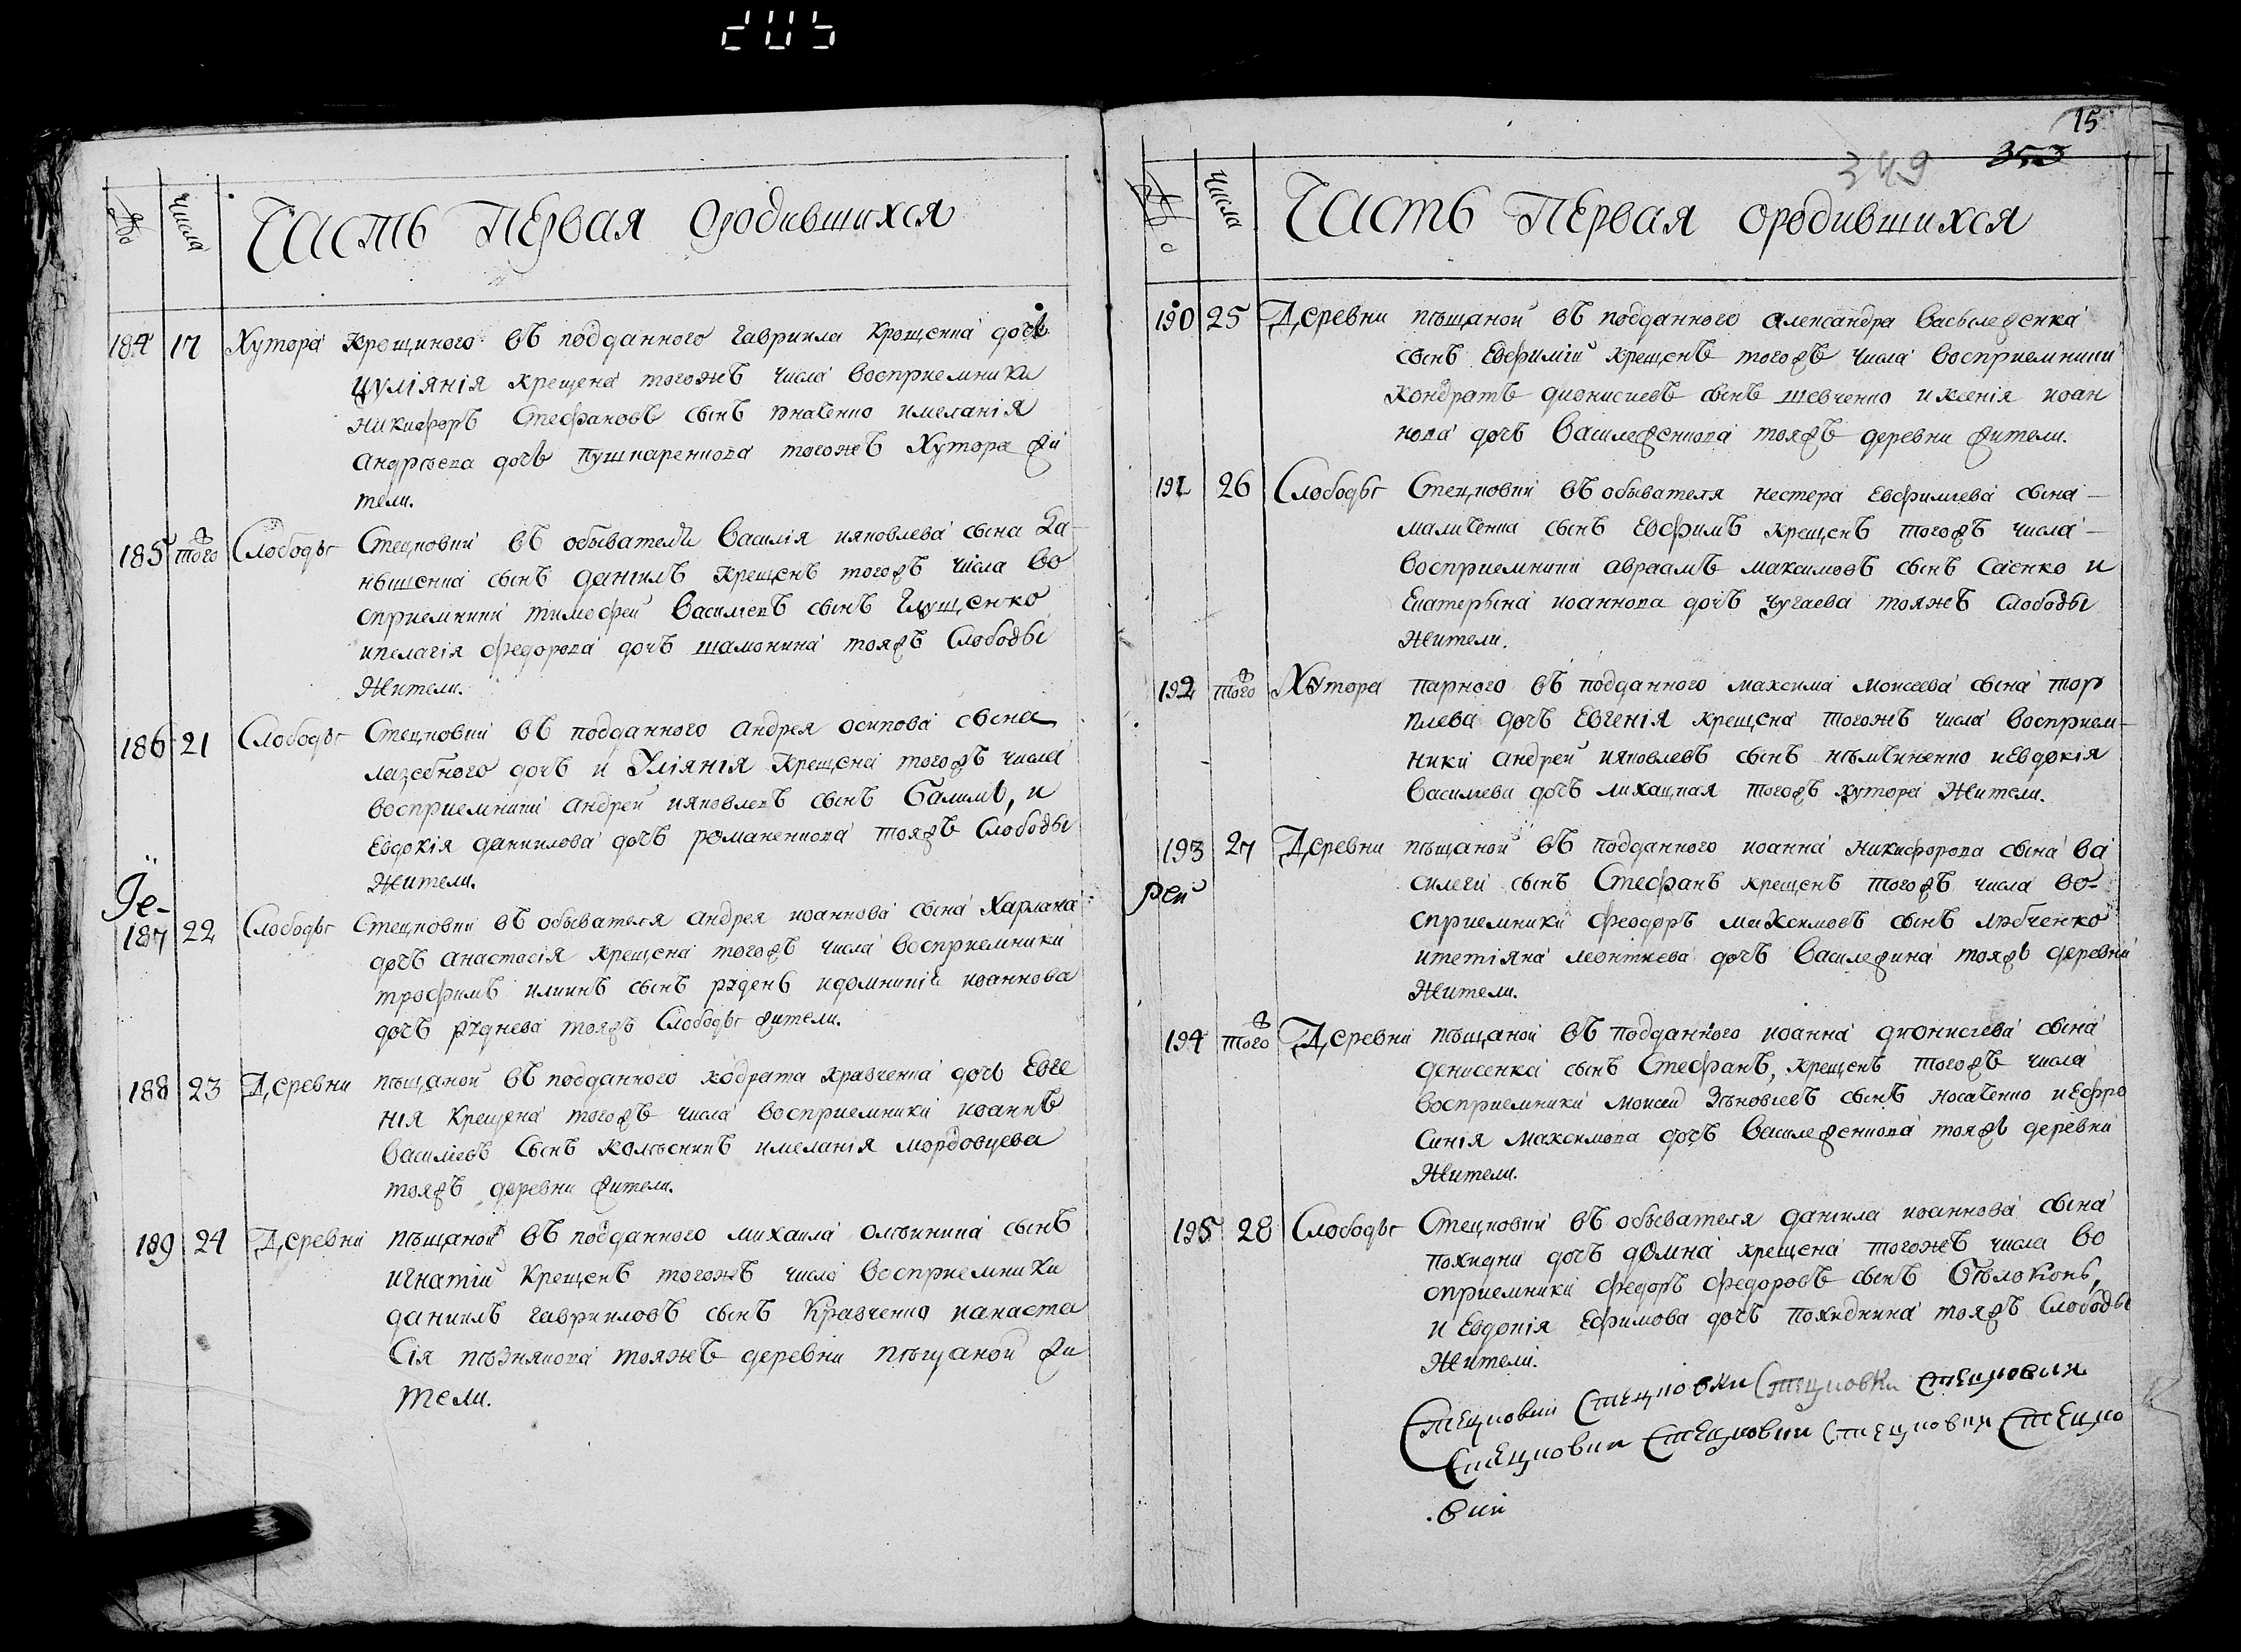 205
№
числа
Часть Первая ородившихся
184 17 Хутора Крещиного въ подданного гавриила крощенка дочь
иуліянія крещена тогожъ числа восприемники
никифоръ Стефановъ сынъ имеланія
андрѣева дочь пушкаренкова тогожъ Хутора жи
тели.
185 того Слободы Стецковки въ обывателя василія ияковлева сына
сынъ даніилъ крещенъ тогожъ числа во
сприемники тимофей василіевъ сынъ Глущенко
ипелагія федорова дочь шамонина тояжъ Слободы
Жители.
186 21 Слободы Стецковки въ подданного андрея осипова сына
лазебного дочь и Уліянія крещена тогожъ числа
восприемники андрей ияковлевъ сынъ Балимъ, и
Евдокія даниилова дочь романенкова тояжъ Слободы
Жители.
Ге-
187 22 Слободы Стецковки въ обывателя андрея иоаннова сына Харлана
дочь анастасія крещена тогожъ числа восприемники
трофимъ илиинъ сынъ рудень идомникія иоаннова
дочь руднева тояжъ Слободы жители.
188 23 Деревни пѣщаной въ подданного кодрата кравченка дочь Евге
нія крещена тогожъ числа восприемники иоаннъ
василіевъ сынъ колѣсникъ имеланія мордовцева
тояжъ деревни жители.
189 24 Деревни пѣщаной въ подданного михаила олѣиника сынъ
игнатій крещенъ тогожъ числа восприемники
даниилъ гаврииловъ сынъ Кравченко ианаста
сія пѣзнякова тояжъ деревни пѣщаной жи
тели.
15
353
349
№
числа
Часть Первая ородившихся
190 25 Деревни пѣщаной въ подданного александра васылеженка
сынъ Евфимій крещенъ тогожъ числа восприемники
кондратъ дионисиевъ сынъ шевченко иксенія иоан
нова дочь василеженкова тояжъ деревни жители.
191 26 Слободы Стецковки въ обывателя нестера Евфимиева сына
маличенка сынъ Евфимъ крещенъ тогожъ числа
восприемники авраамъ максимовъ сынъ Саенко и
Екатерына иоаннова дочь чугаева тояжъ Слободы
Жители.
192 того Хутора парного въ подданного максима моисеева сына тор
плева дочь Евгенія крещена тогожъ числа восприем
ники андрей ияковлевъ сынъ иевдокія
василиева дочь лихацкая тогожъ хутора Жители.
193 27 Деревни пѣщаной въ подданного иоанна никифорова сына ва
силеги сынъ Стефанъ крещенъ тогожъ числа во-
рей
сприемники феодоръ максимовъ сынъ любченко
итетіяна леонтиева дочь василежина тояжъ деревни
Жители.
194 того Деревни пѣщаной въ подданного иоанна дионисіева сына
денисенка сынъ Стефанъ, крещенъ тогожъ числа
восприемники моисей Зѣновіевъ сынъ носаченко иЕфро
синія максимова дочь василеженкова тояжъ деревни
Жители.
195 28 Слободы Стецковки въ обывателя даніила иоаннова сына
похидни дочь домна крещена тогожъ числа во
сприемники федоръ федоровъ сынъ бѣлоконь,
и Евдокія Ефимова дочь похиднина тояжъ Слободы
Жители.
Стецковки Стецковки Стецковки Стецковки
Стецковки Стецковки Стецковки Стецко
вки